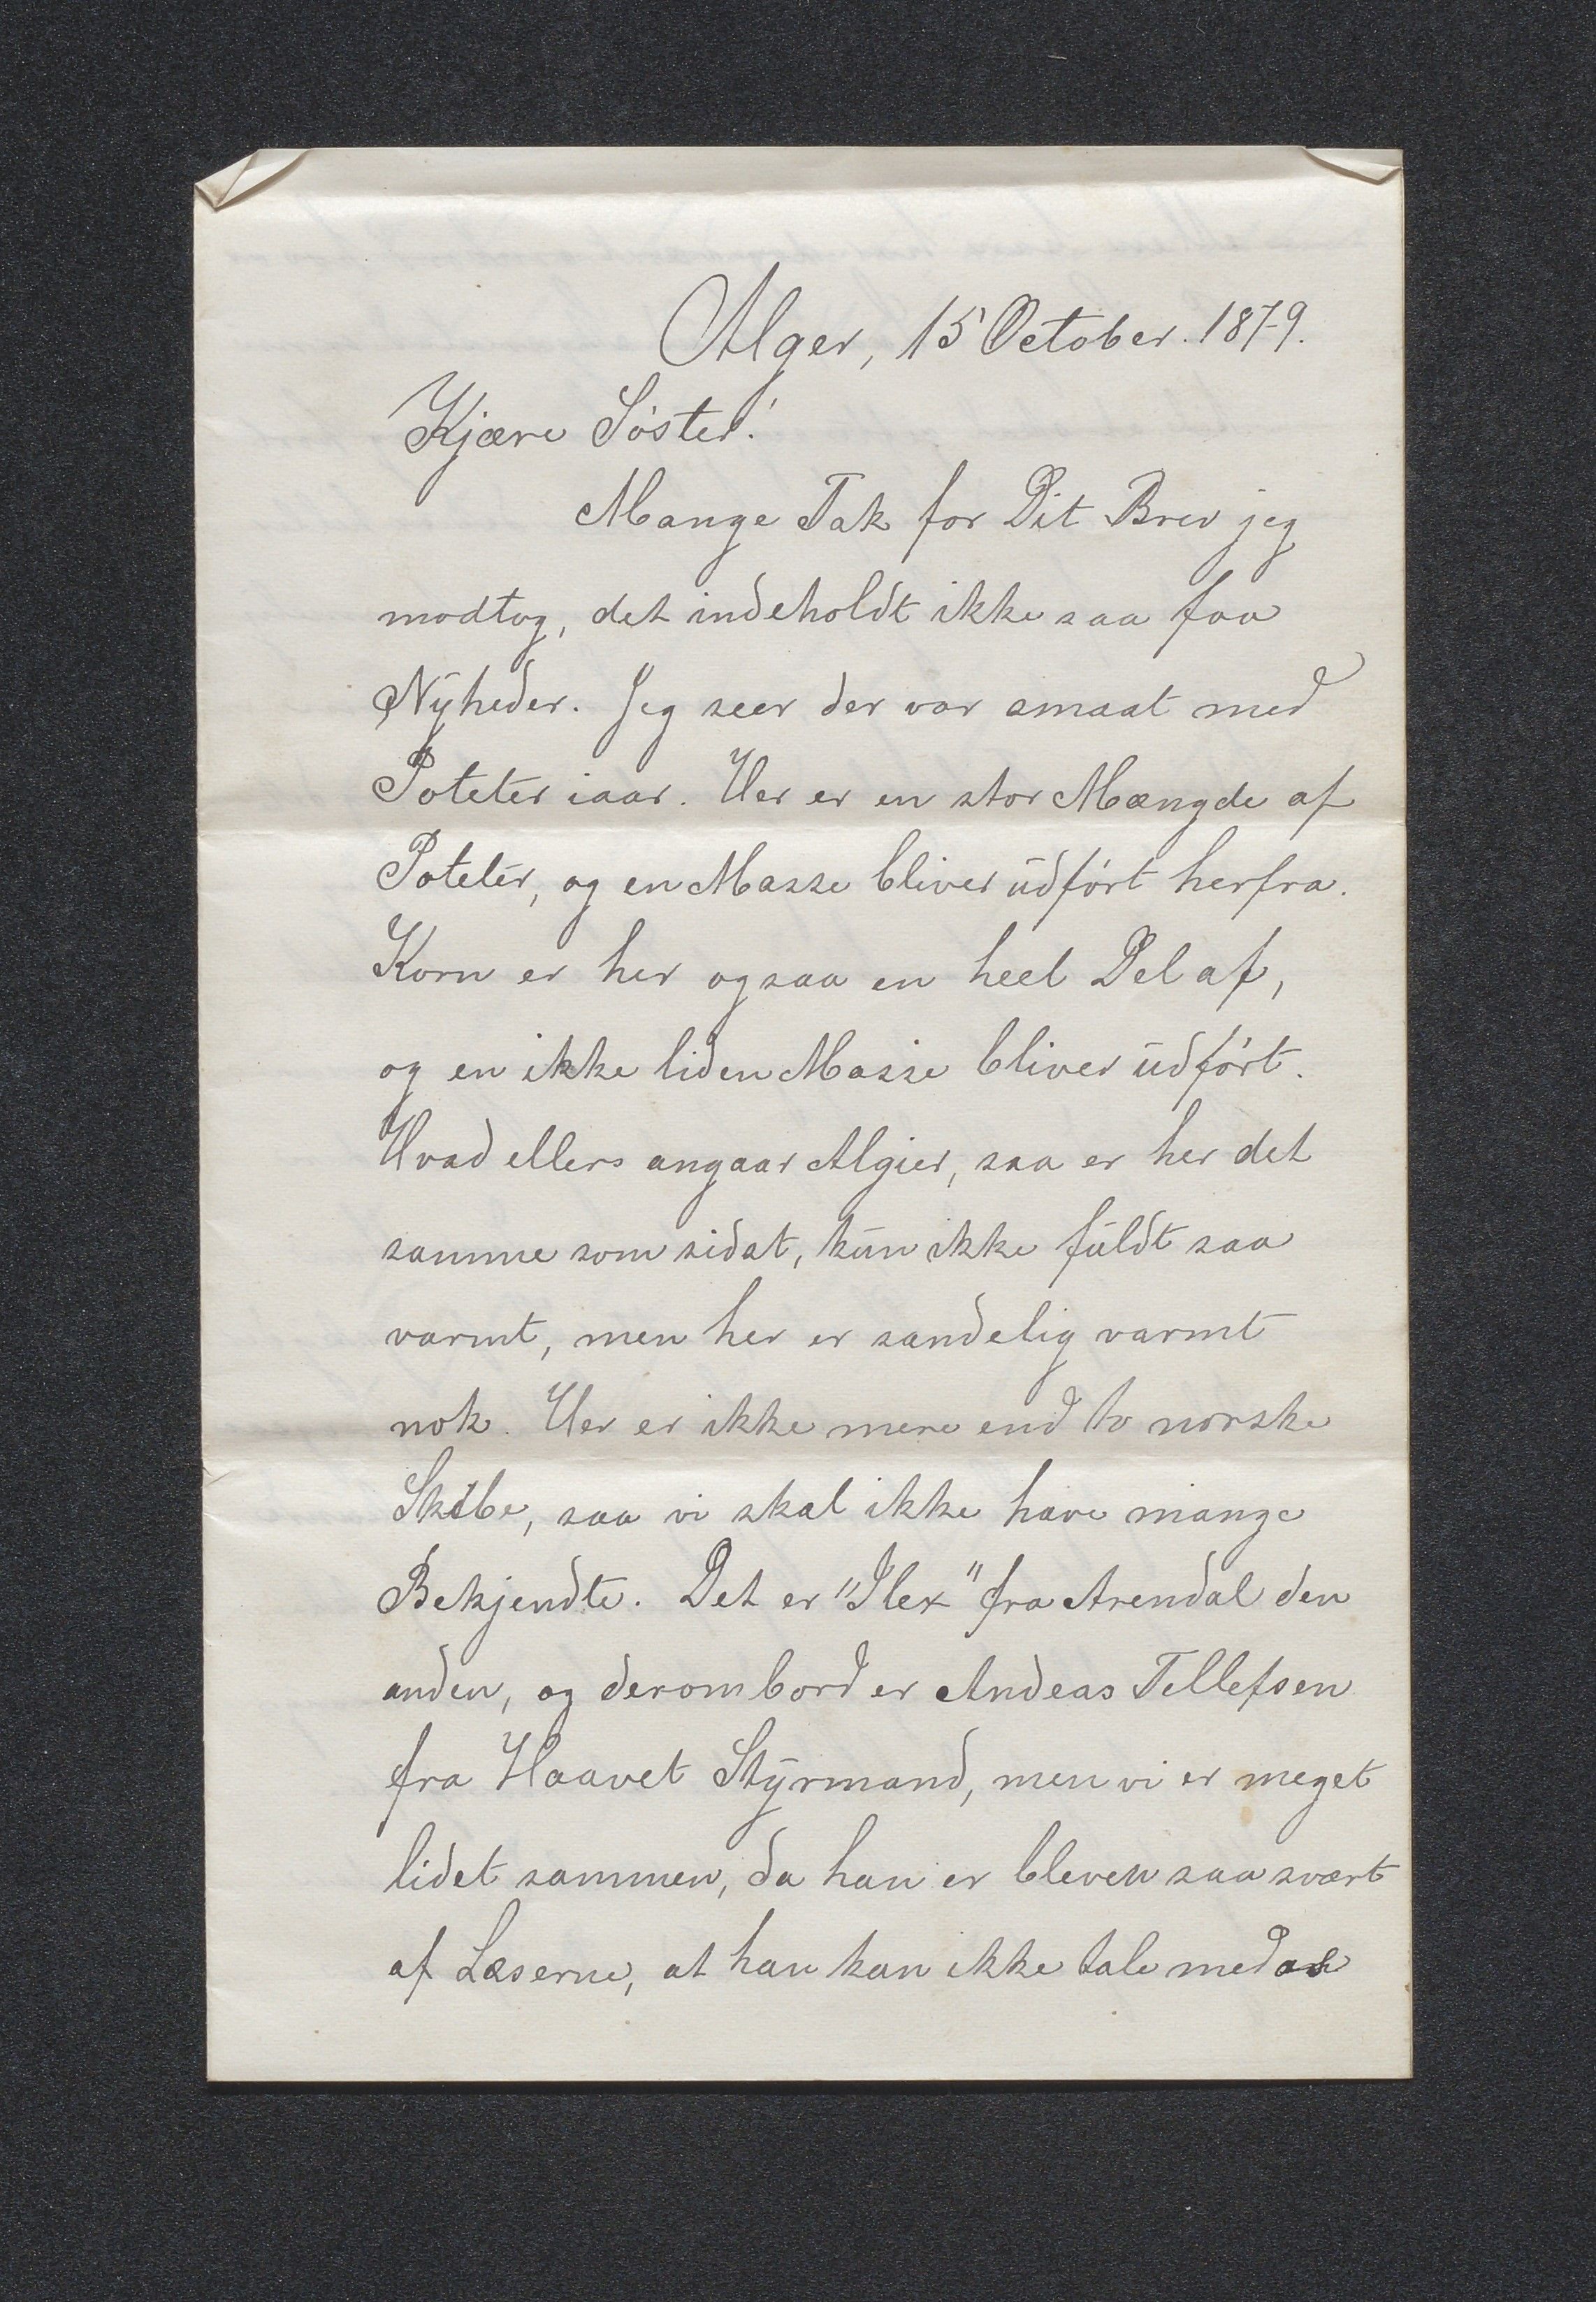 Alger, 15 October. 1879.
Kjære Söster!
Mange Tak for Dit Brev jeg
modtog, det indeholdt ikke saa faa
Nyheder. Jeg seer der var smaat med
Poteter iaar. Her er en stor Mængde af
Poteter, og en Masse bliver udfört herfra.
Korn er her ogsaa en heel Del af,
og en ikke liden Masse bliver udfört.
Hvad ellers angaar Algier, saa er her det
samme som sidst, kun ikke fuldt saa
varmt, men her er sandelig varmt
nok. Her er ikke mere end to norske
Skibe, saa vi skal ikke have mange
Bekjendte. Det er "Ilex" fra Arendal den
anden, og derombord er Andeas Tellefsen
fra Haavet Styrmand, men vi er meget
lidet sammen, da han er bleven saa svært
af Læserne, at han kan ikke tale med os